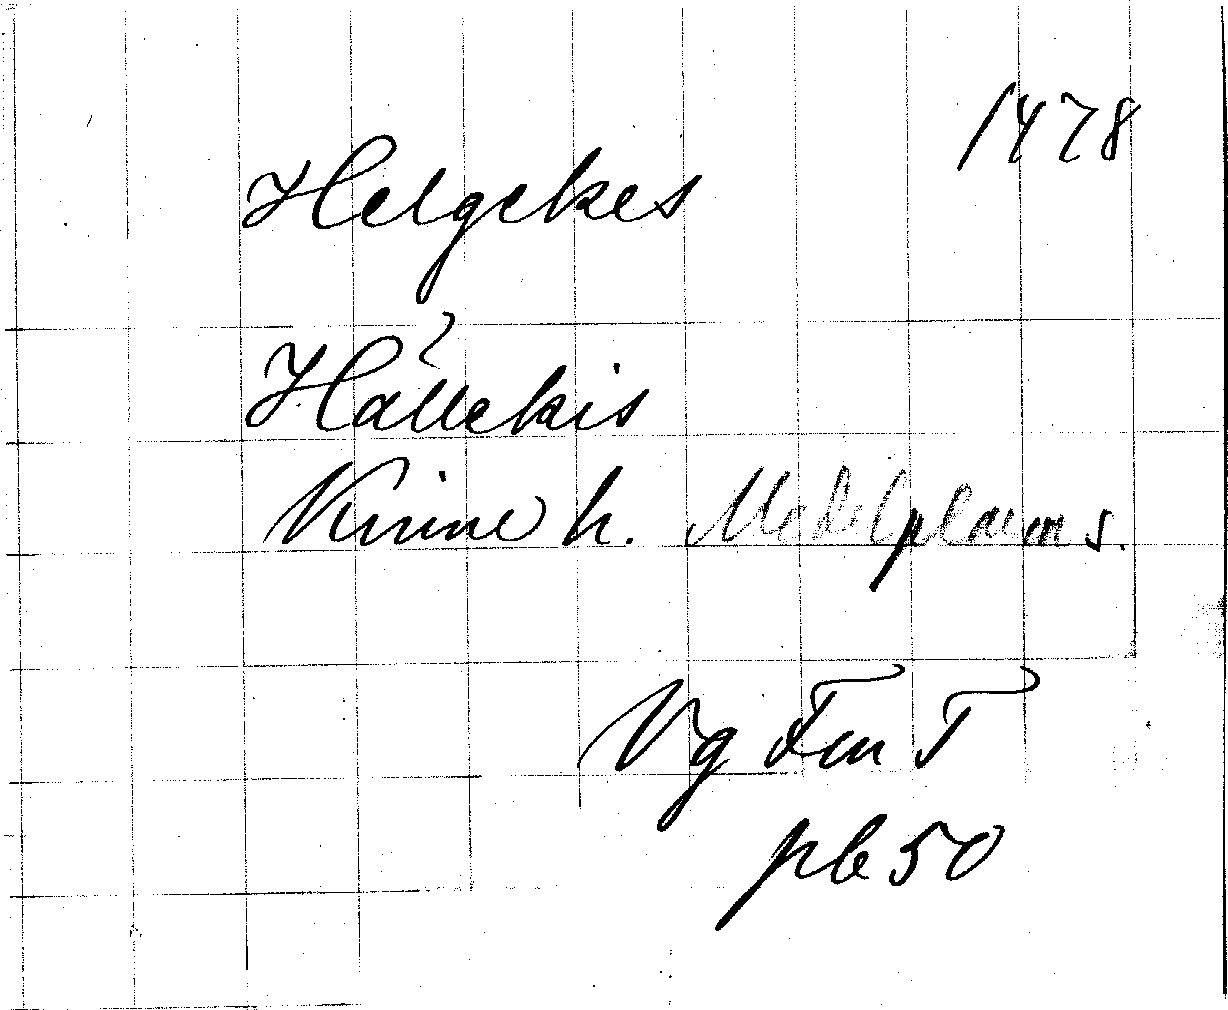 1478
Helgekes
?
Hällekis
Kinne h. Medelplana s.
Vg Fm T
pb 50